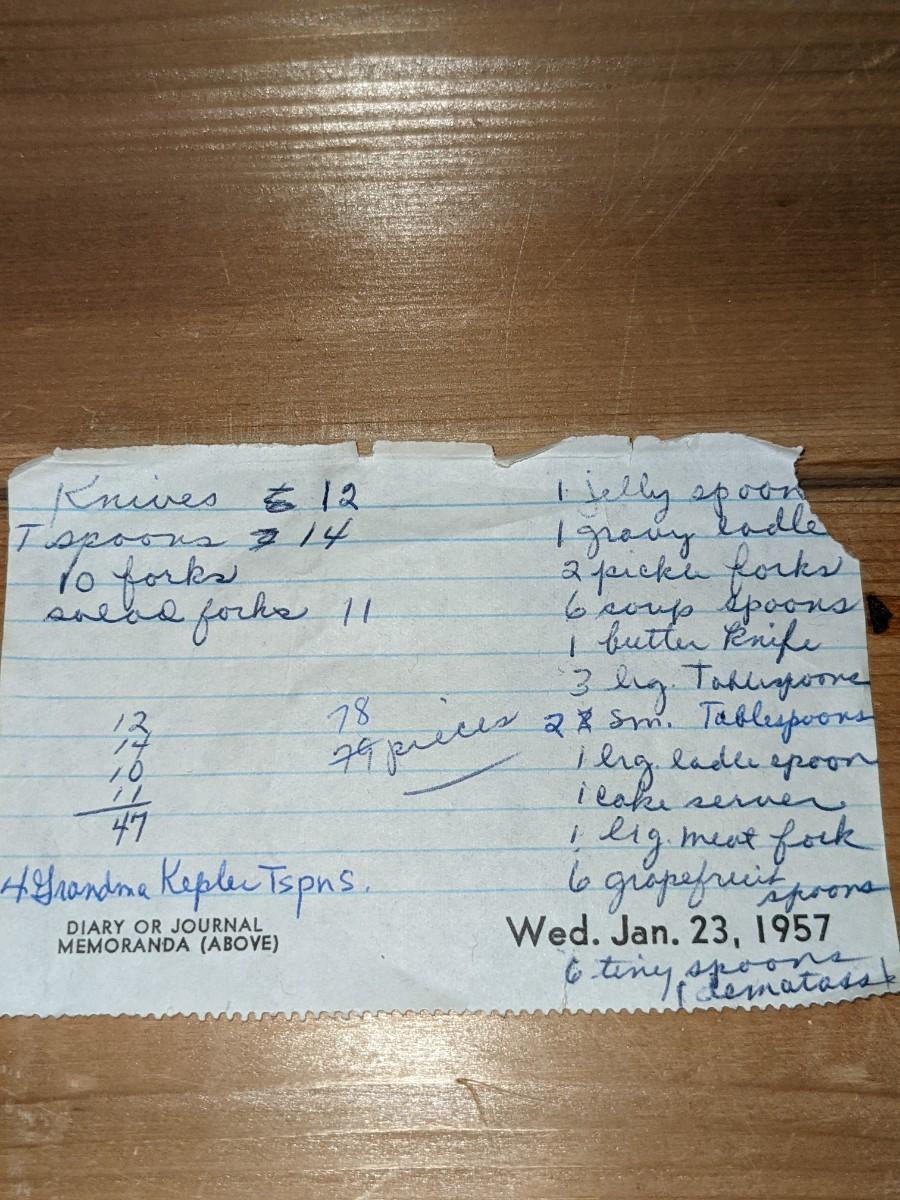 Knives 12
T spoons 14
10 forks
salad forks 11
12
14
10
11
47
78
79 pieces
4 Grandma Kepler Tspns.
DIARY OR JOURNAL
MEMORANDA (ABOVE)
1 jelly spoon
1 gravy ladle
2 pickle forks
6 soup spoons
1 butter knife
3 lrg. Tablespoons
2 sm. Tablespoons
1 lrg. ladle spoon
1 cake server
1 lrg. meat fork
6 grapefruit
spoons
Wed. Jan. 23, 1957
6 tiny spoons
(dematass)